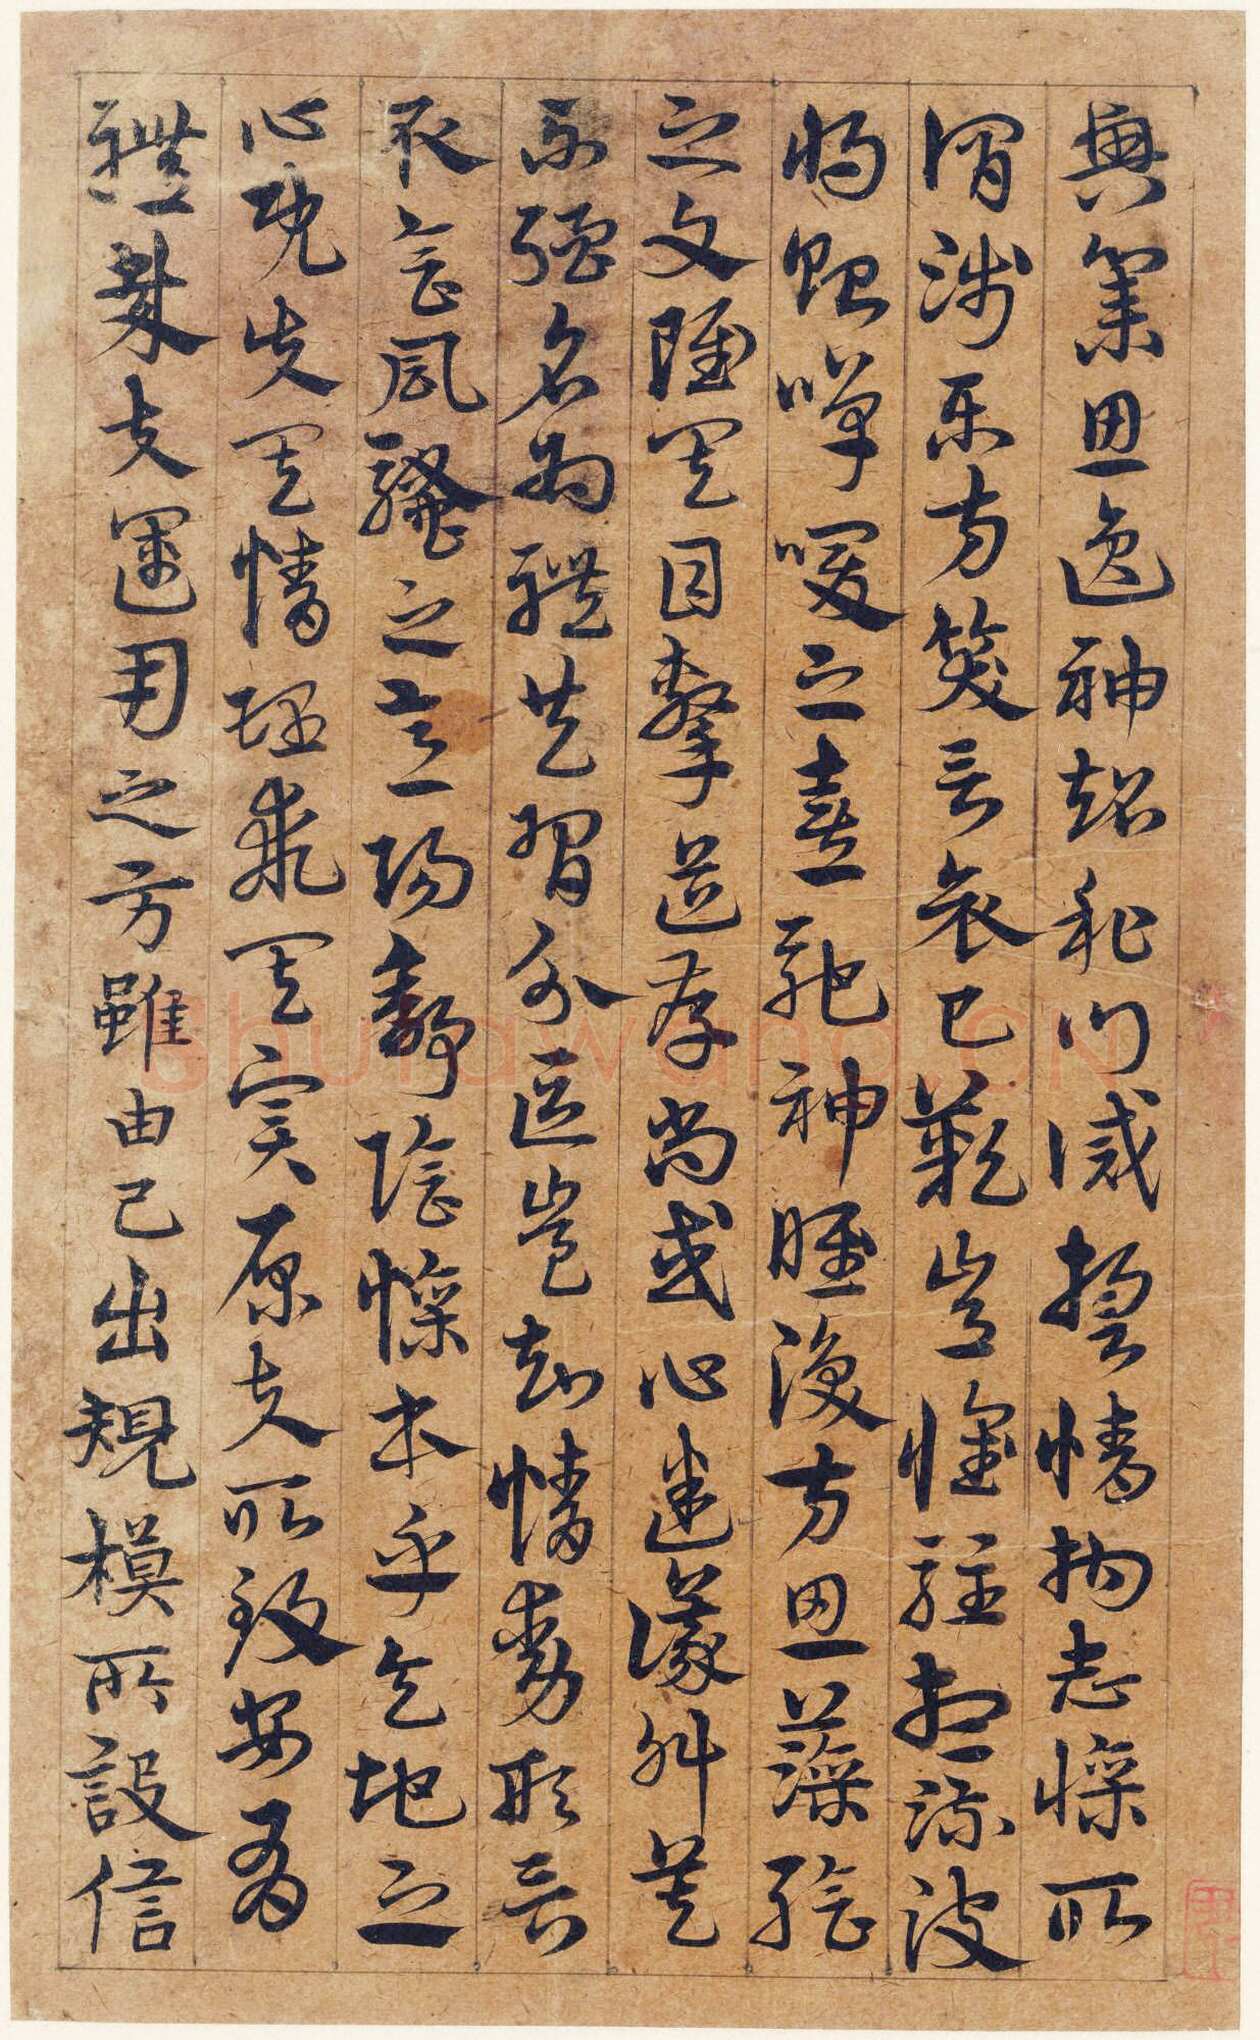 興集思逸神超私門誡誓情拘志慘所
謂涉樂方笑言哀已歎豈惟駐想流波
將貽嘽噯之奏馳神睢渙方思藻繪
之文雖其目擊道存尚或心迷議舛莫
不強名為體共習分區豈知情動形言
取會風騷之意陽舒陰慘本乎天地之
心既失其情理乖其實原夫所致安有
體哉夫運用之方雖由己出規模所設信
shufawang.CN